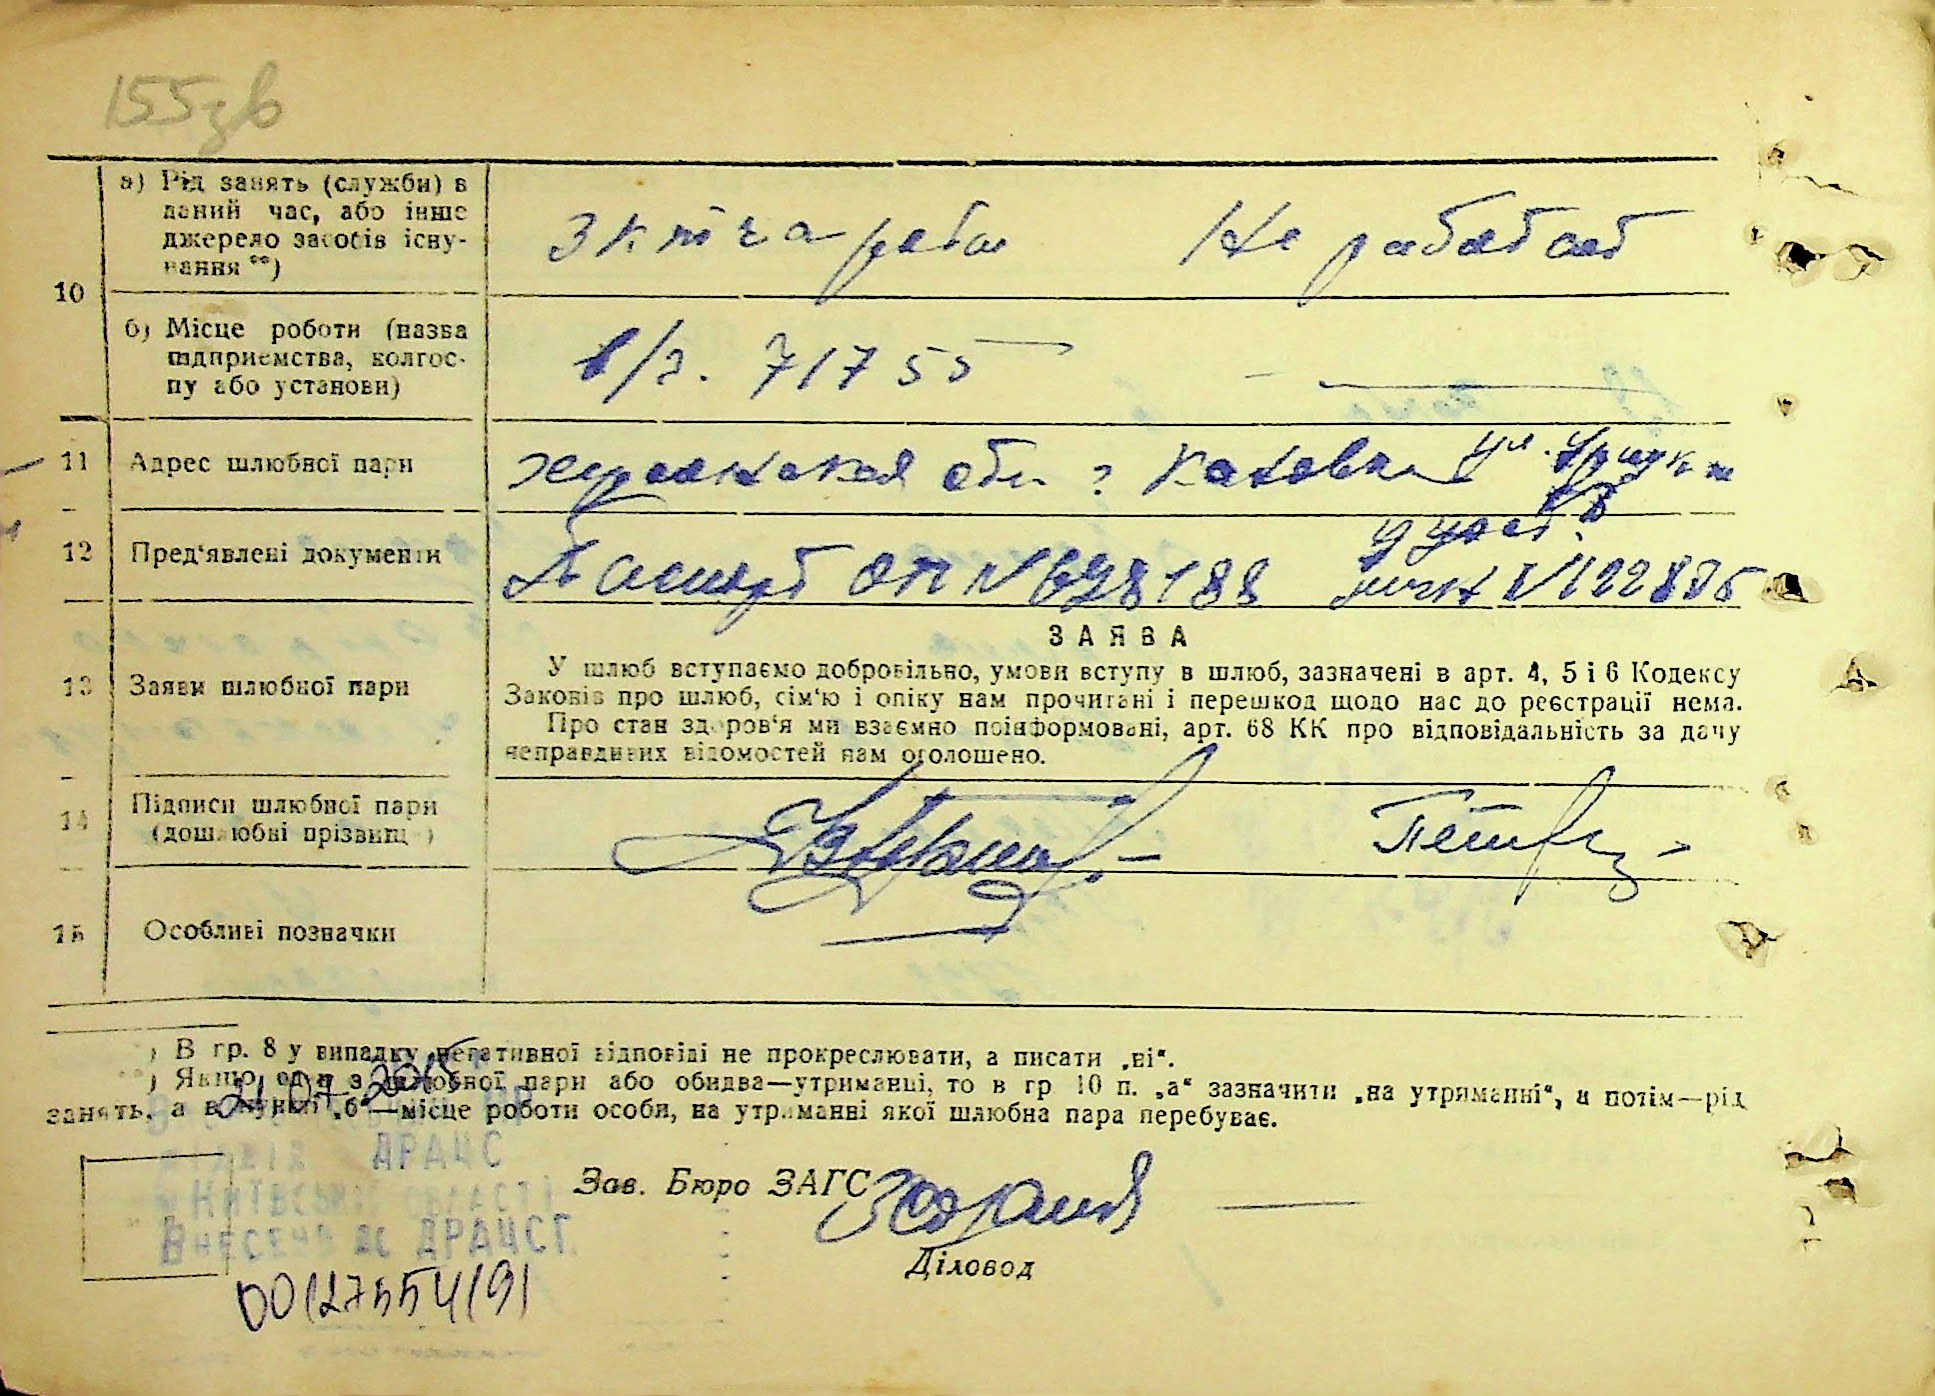 155зв
10
а) Рід занять (служби) в
даний час, або інше
джерело засобів існу-
вання **)
Не работает
б) Місце роботи (назва
підприємства, колгос-
пу або установи)
в/ч. 71755
11 Адрес шлюбної пари
Херсонская обл. г. Каховка ул.
12 Пред'явлені документи
удост.
Паспорт № 698188 № 122885
13 Заяви шлюбної пари
ЗАЯВА
У шлюб вступаємо добровільно, умови вступу в шлюб, зазначені в арт. 4, 5 і 6 Кодексу
Законів про шлюб, сім'ю і опіку нам прочитані і перешкод щодо нас до реєстрації нема.
Про стан здоров'я ми взаємно поінформовані, арт. 68 КК про відповідальність за дачу
неправдивих відомостей нам оголошено.
14 Підписи шлюбної пари
(дошлюбні прізвищ )
15 Особливі позначки
*) В гр. 8 у випадку негативної відповіді не прокреслювати, а писати „ні“.
**) Якщо один з шлюбної пари або обидва—утриманці, то в гр 10 п. „а“ зазначити „на утриманні“, а потім—рід
занять, а в пункті „б“—місце роботи особи, на утриманні якої шлюбна пара перебуває.
21 07 2015
ДРАЦС
Київській області
Внесено до ДРАЦСГ
00127554191
Зав. Бюро ЗАГС
Діловод